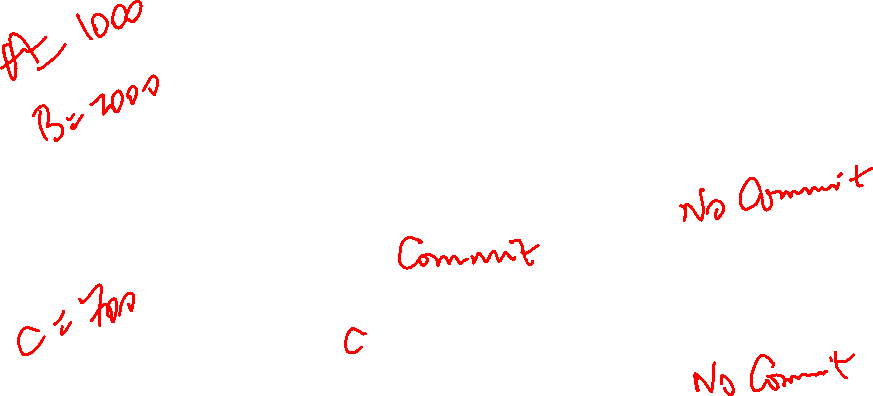 A 1000
B = 2000
No Commit
Commit
C = 700
C
No Commit